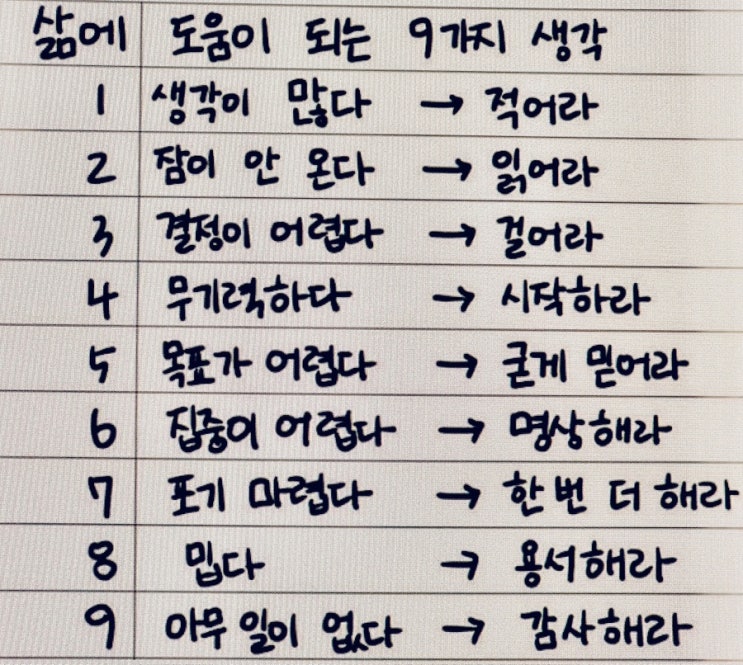 삶에 도움이 되는 9가지 생각
1 생각이 많다 → 적어라
2 잠이 안 온다 → 읽어라
3 결정이 어렵다 → 걸어라
4 무기력하다 → 시작하라
5 목표가 어렵다 → 굳게 믿어라
6 집중이 어렵다 → 명상해라
7 포기 마렵다 → 한 번 더 해라
8 밉다 → 용서해라
9 아무 일이 없다 → 감사해라